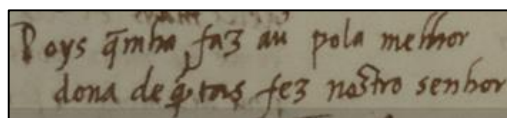 Poys q̃mha faz au pola melhor
dona de q̃tas fez nostro senhor